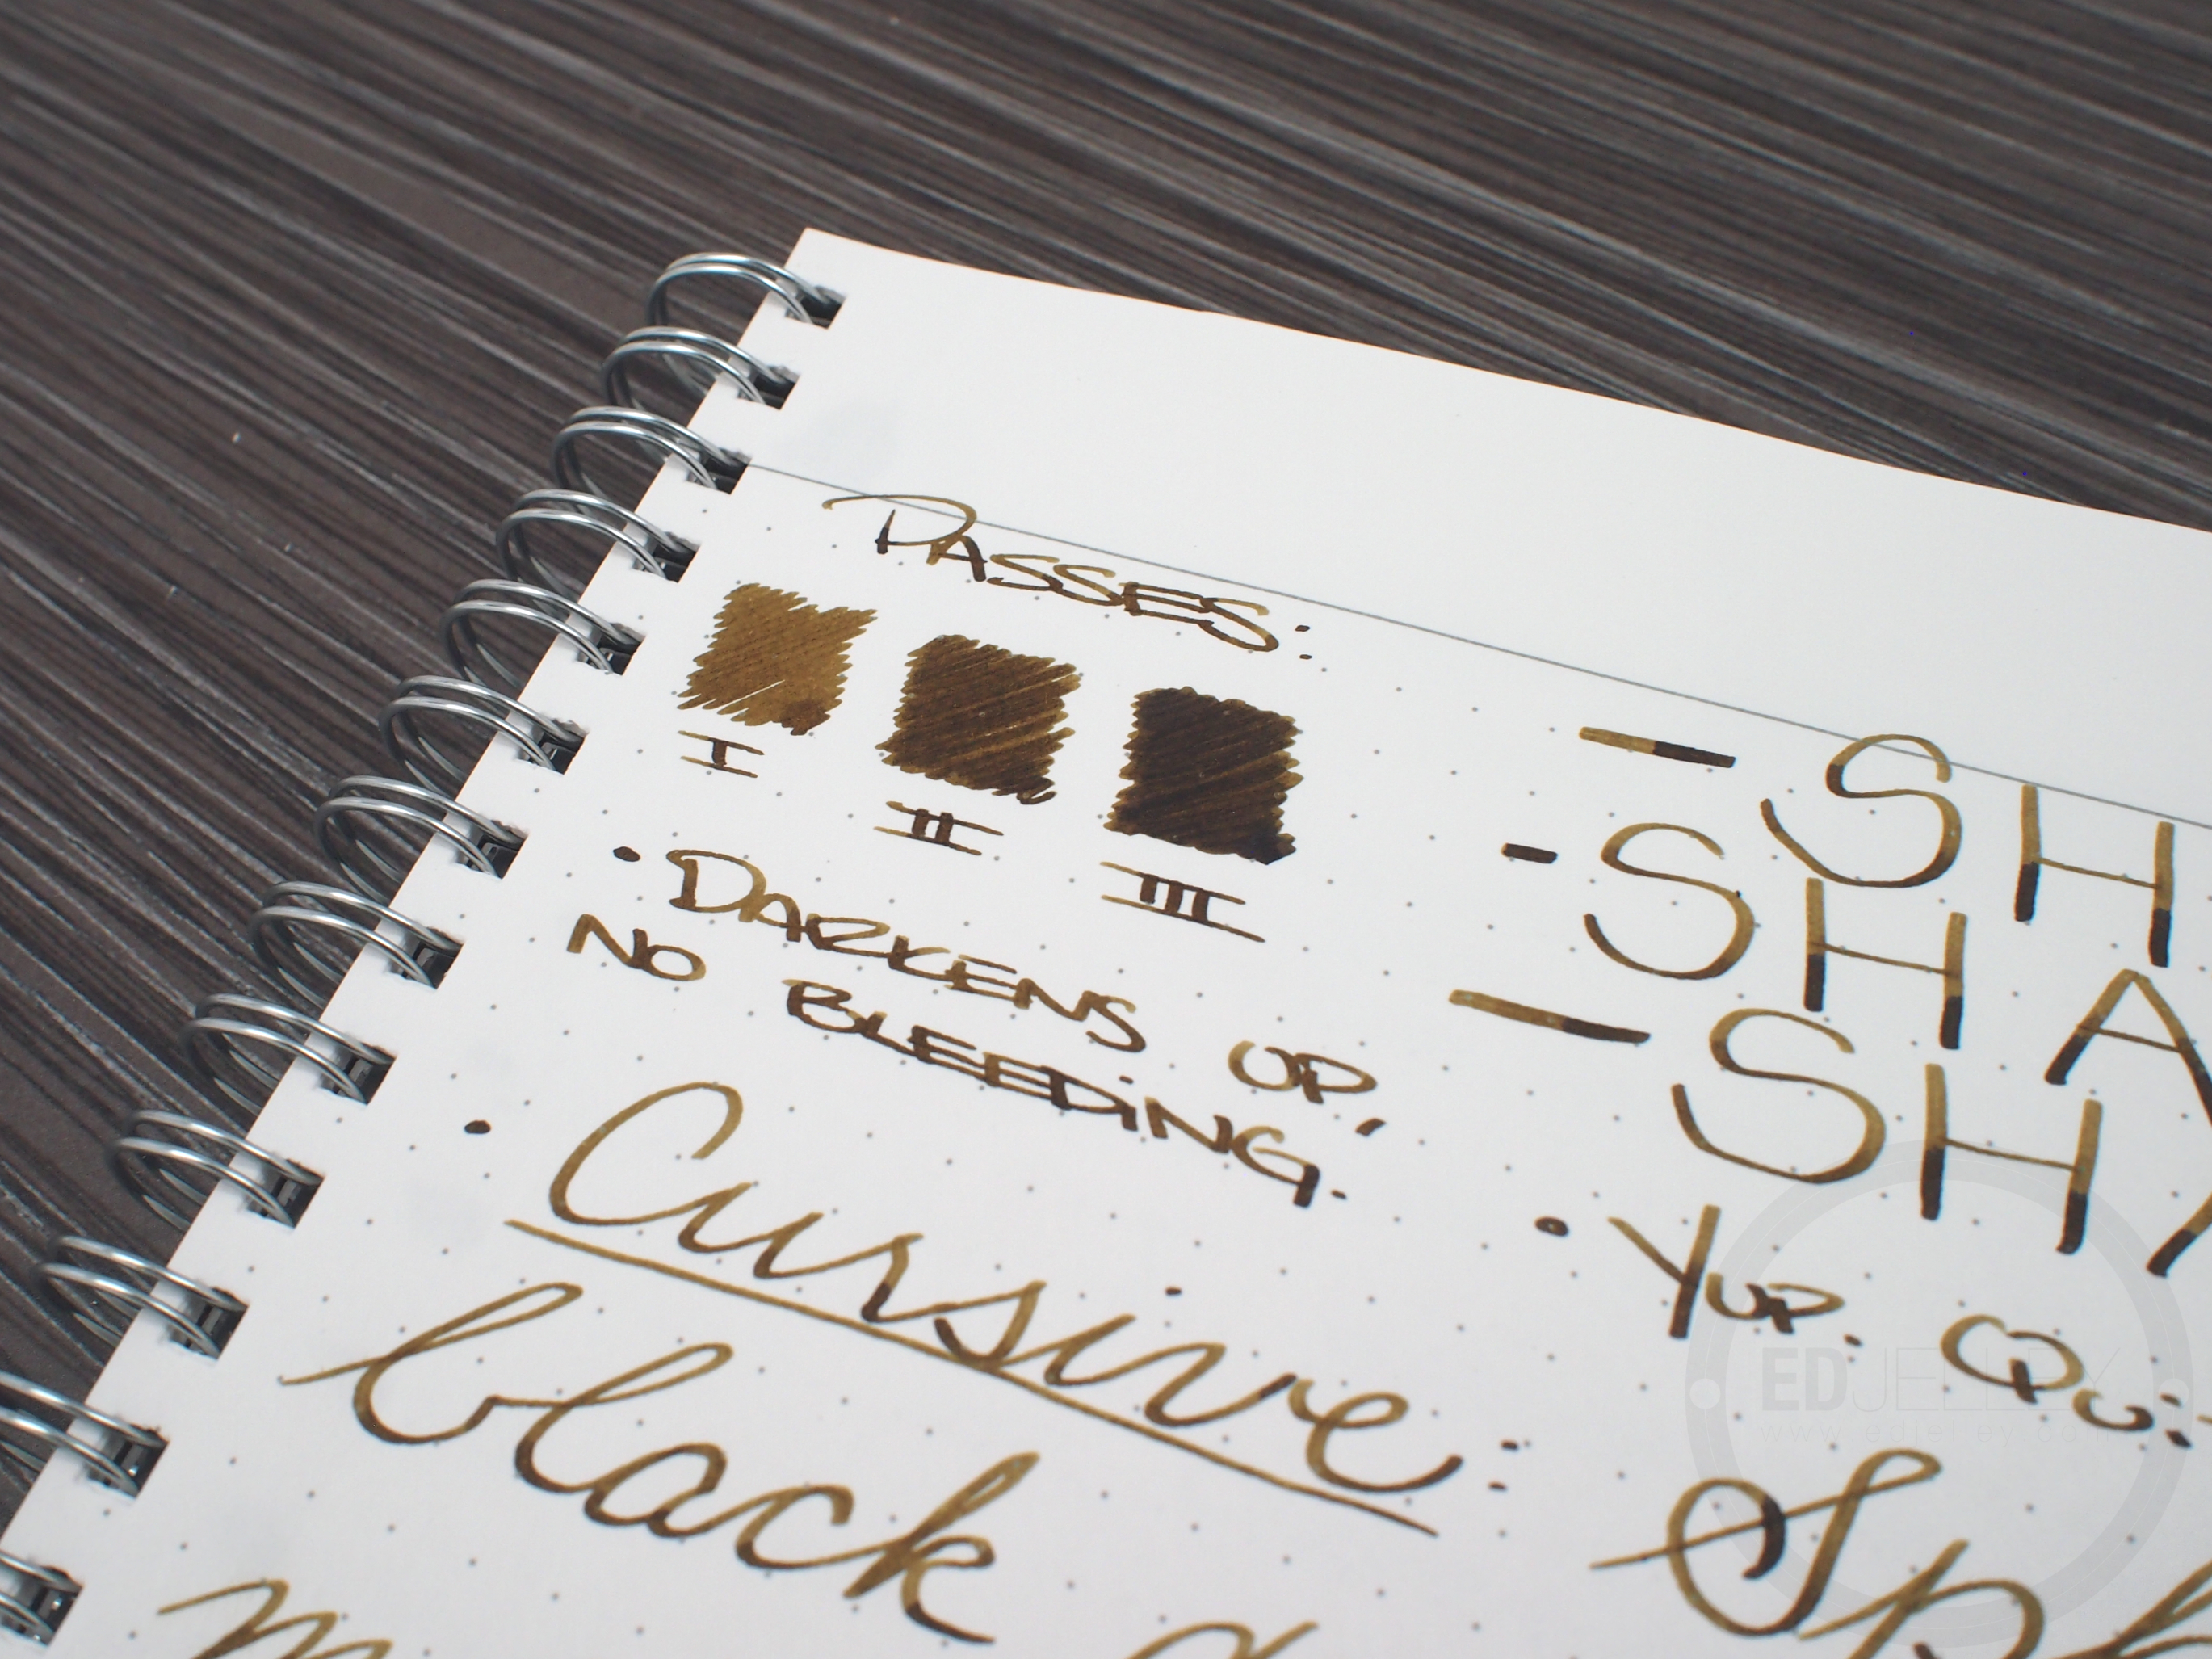 PASSES:
I II III
• DARKENS UP,
NO BLEEDING.
• Cursive:
black
- SH
- SHA
- SH
• YUP.
Sp
EDJELLEY
www.edjelley.com